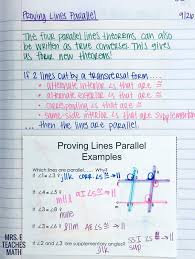 Proving Lines Parallel 9/20
The four parallel lines theorems can also
be written as true converses. This gives
us their new theorems!
If 2 lines cut by a transversal form....
• alternate interior ∠s that are ≅
• alternate exterior ∠s that are ≅
• corresponding ∠s that are ≅
• same side interior ∠s that are supplementary
... then the lines are parallel.
Proving Lines Parallel
Examples
Which lines are parallel...... Why?
corr. ∠s ≅ → ||
AI ∠s ≅ → ||
none
AE ∠s ≅ → ||
If ∠2 and ∠3 are supplementary angles?
SSI ∠s
sup → ||
MRS. E
TEACHES
MATH